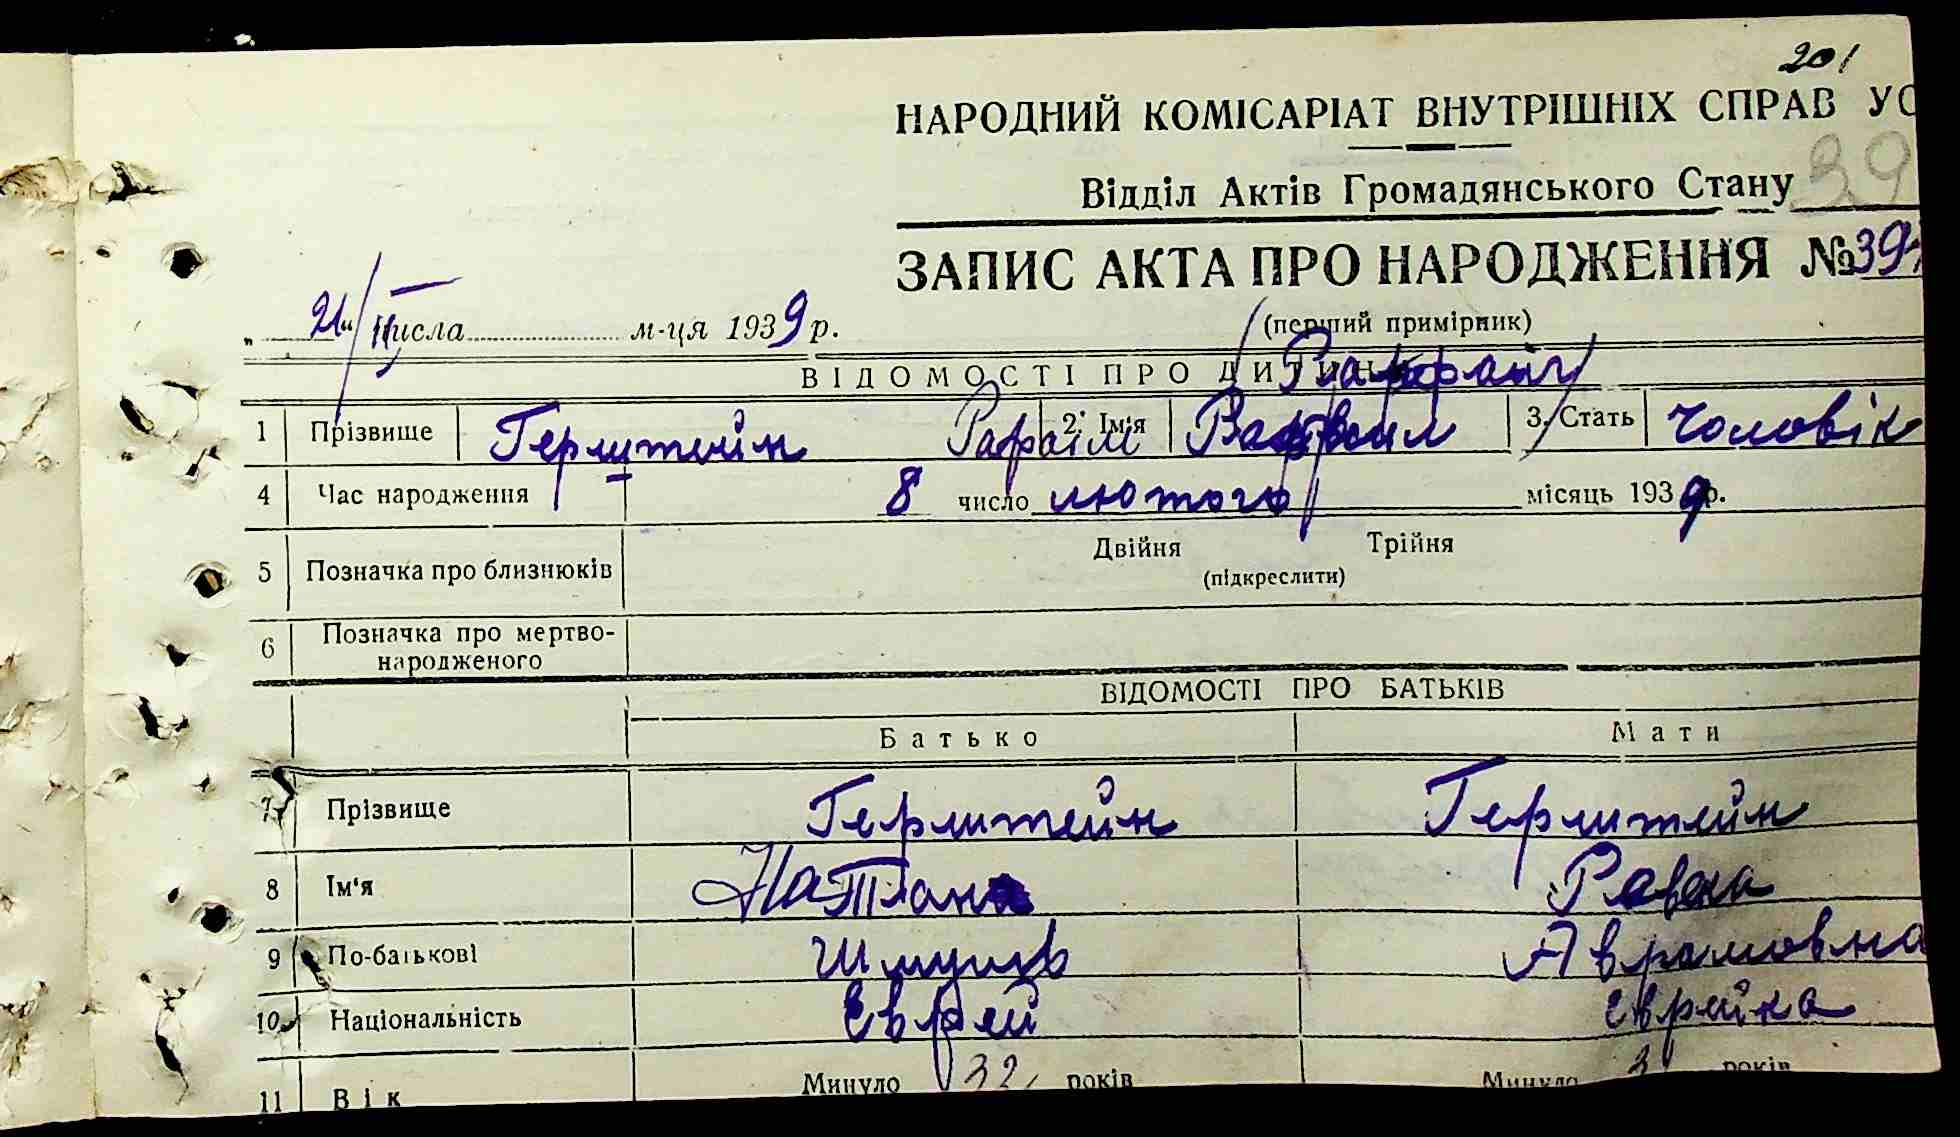 201
НАРОДНИЙ КОМІСАРІАТ ВНУТРІШНІХ СПРАВ УС
39
Відділ Актів Громадянського Стану
ЗАПИС АКТА ПРО НАРОДЖЕННЯ №39
„21“/II числа м-ця 1939 р.
(перший примірник)
ВІДОМОСТІ ПРО ДИТИНУ
1 Прізвище Герштейн Рафаїм 2. Ім'я 3. Стать чоловік
4 Час народження 8 число лютого місяць 1939 р.
5 Позначка про близнюків Двійня Трійня
(підкреслити)
6 Позначка про мертво-
народженого
ВІДОМОСТІ ПРО БАТЬКІВ
Батько Мати
7 Прізвище Герштейн Герштейн
8 Ім'я Натан Ревека
9 По-батькові Шмулів Аврамовна
10 Національність Єврей Єврейка
11 Вік Минуло 32 років Минуло 3 років